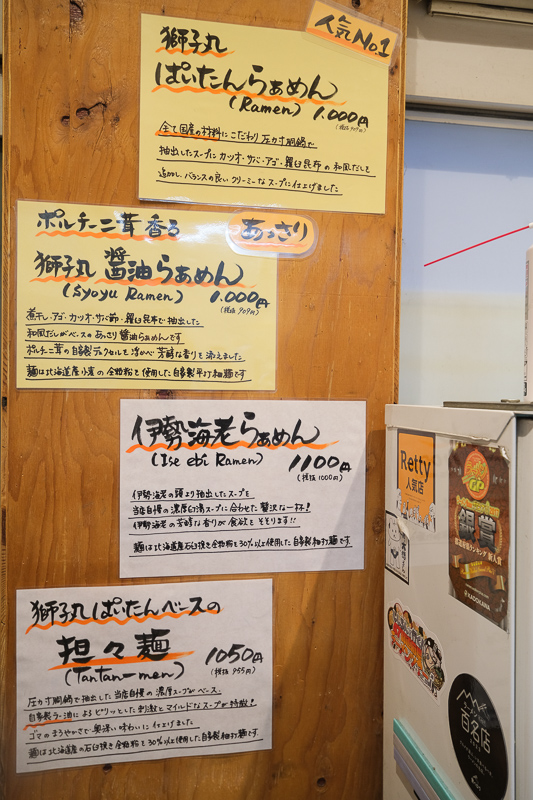 人気No.1
獅子丸
ぱいたんらぁめん
(Ramen) 1.000円
全て国産の材料にこだわり圧力寸胴鍋で
抽出したスープにカツオ・サバ・アゴ・羅臼昆布の和風だしを
追加し、バランスの良いクリーミーなスープに仕上げました
ポルチーニ茸香る
あっさり
獅子丸 醤油らぁめん
(Syoyu Ramen) 1.000円
(税抜 909円)
煮干し・アゴ・カツオ・サバ節・羅臼昆布で抽出した
和風だしがベースのあっさり醤油らぁめんです
ポルチーニ茸の自家製デュクセルを浮かべ芳醇な香りを添えました
麺は北海道産小麦の全粒粉を使用した自家製平打ち細麺です
伊勢海老らぁめん
(Ise ebi Ramen) 1100円
(税抜 1000円)
伊勢海老の頭より抽出したスープを
当店自慢の濃厚白湯スープに合わせた贅沢な一杯!
伊勢海老の芳醇な香りが食欲をそそります!!
麺は北海道産石臼挽き全粒粉を30%以上使用した自家製細打ち麺です。
獅子丸ぱいたんベースの
担々麺
(Tantan-men)
1050円
(税抜 955円)
圧力寸胴鍋で抽出した当店自慢の濃厚スープがベース。
自家製ラー油によるピリッとした刺激とマイルドなスープが特徴!
ゴマのまろやかさで奥深い味わいに仕上げました
麺は北海道産の石臼挽き全粒粉を30%以上使用した自家製細打ち麺です。
Retty
人気店
銀賞
KADOKAWA
百名店